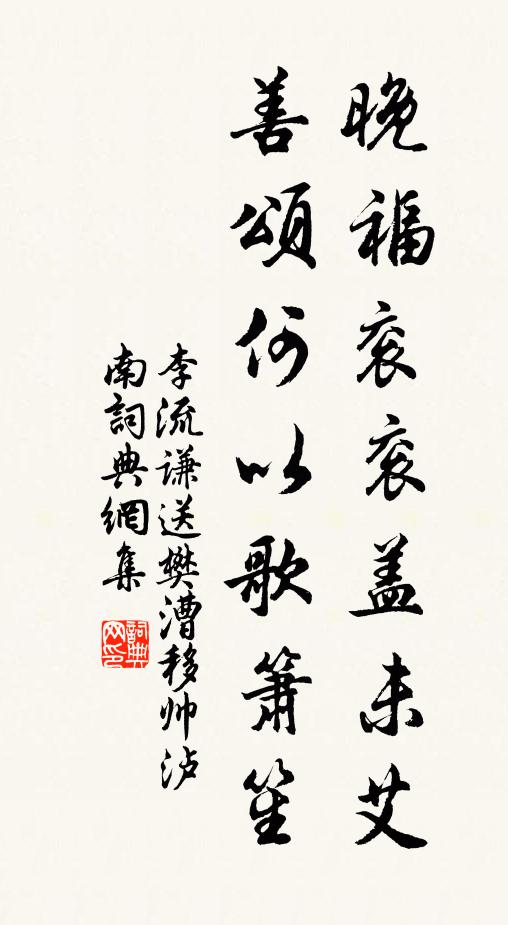 晚福衮衮盖未艾
善頌何以歌簫笙
李流谦送樊漕移帅泸
南詞典網集
詞典网印